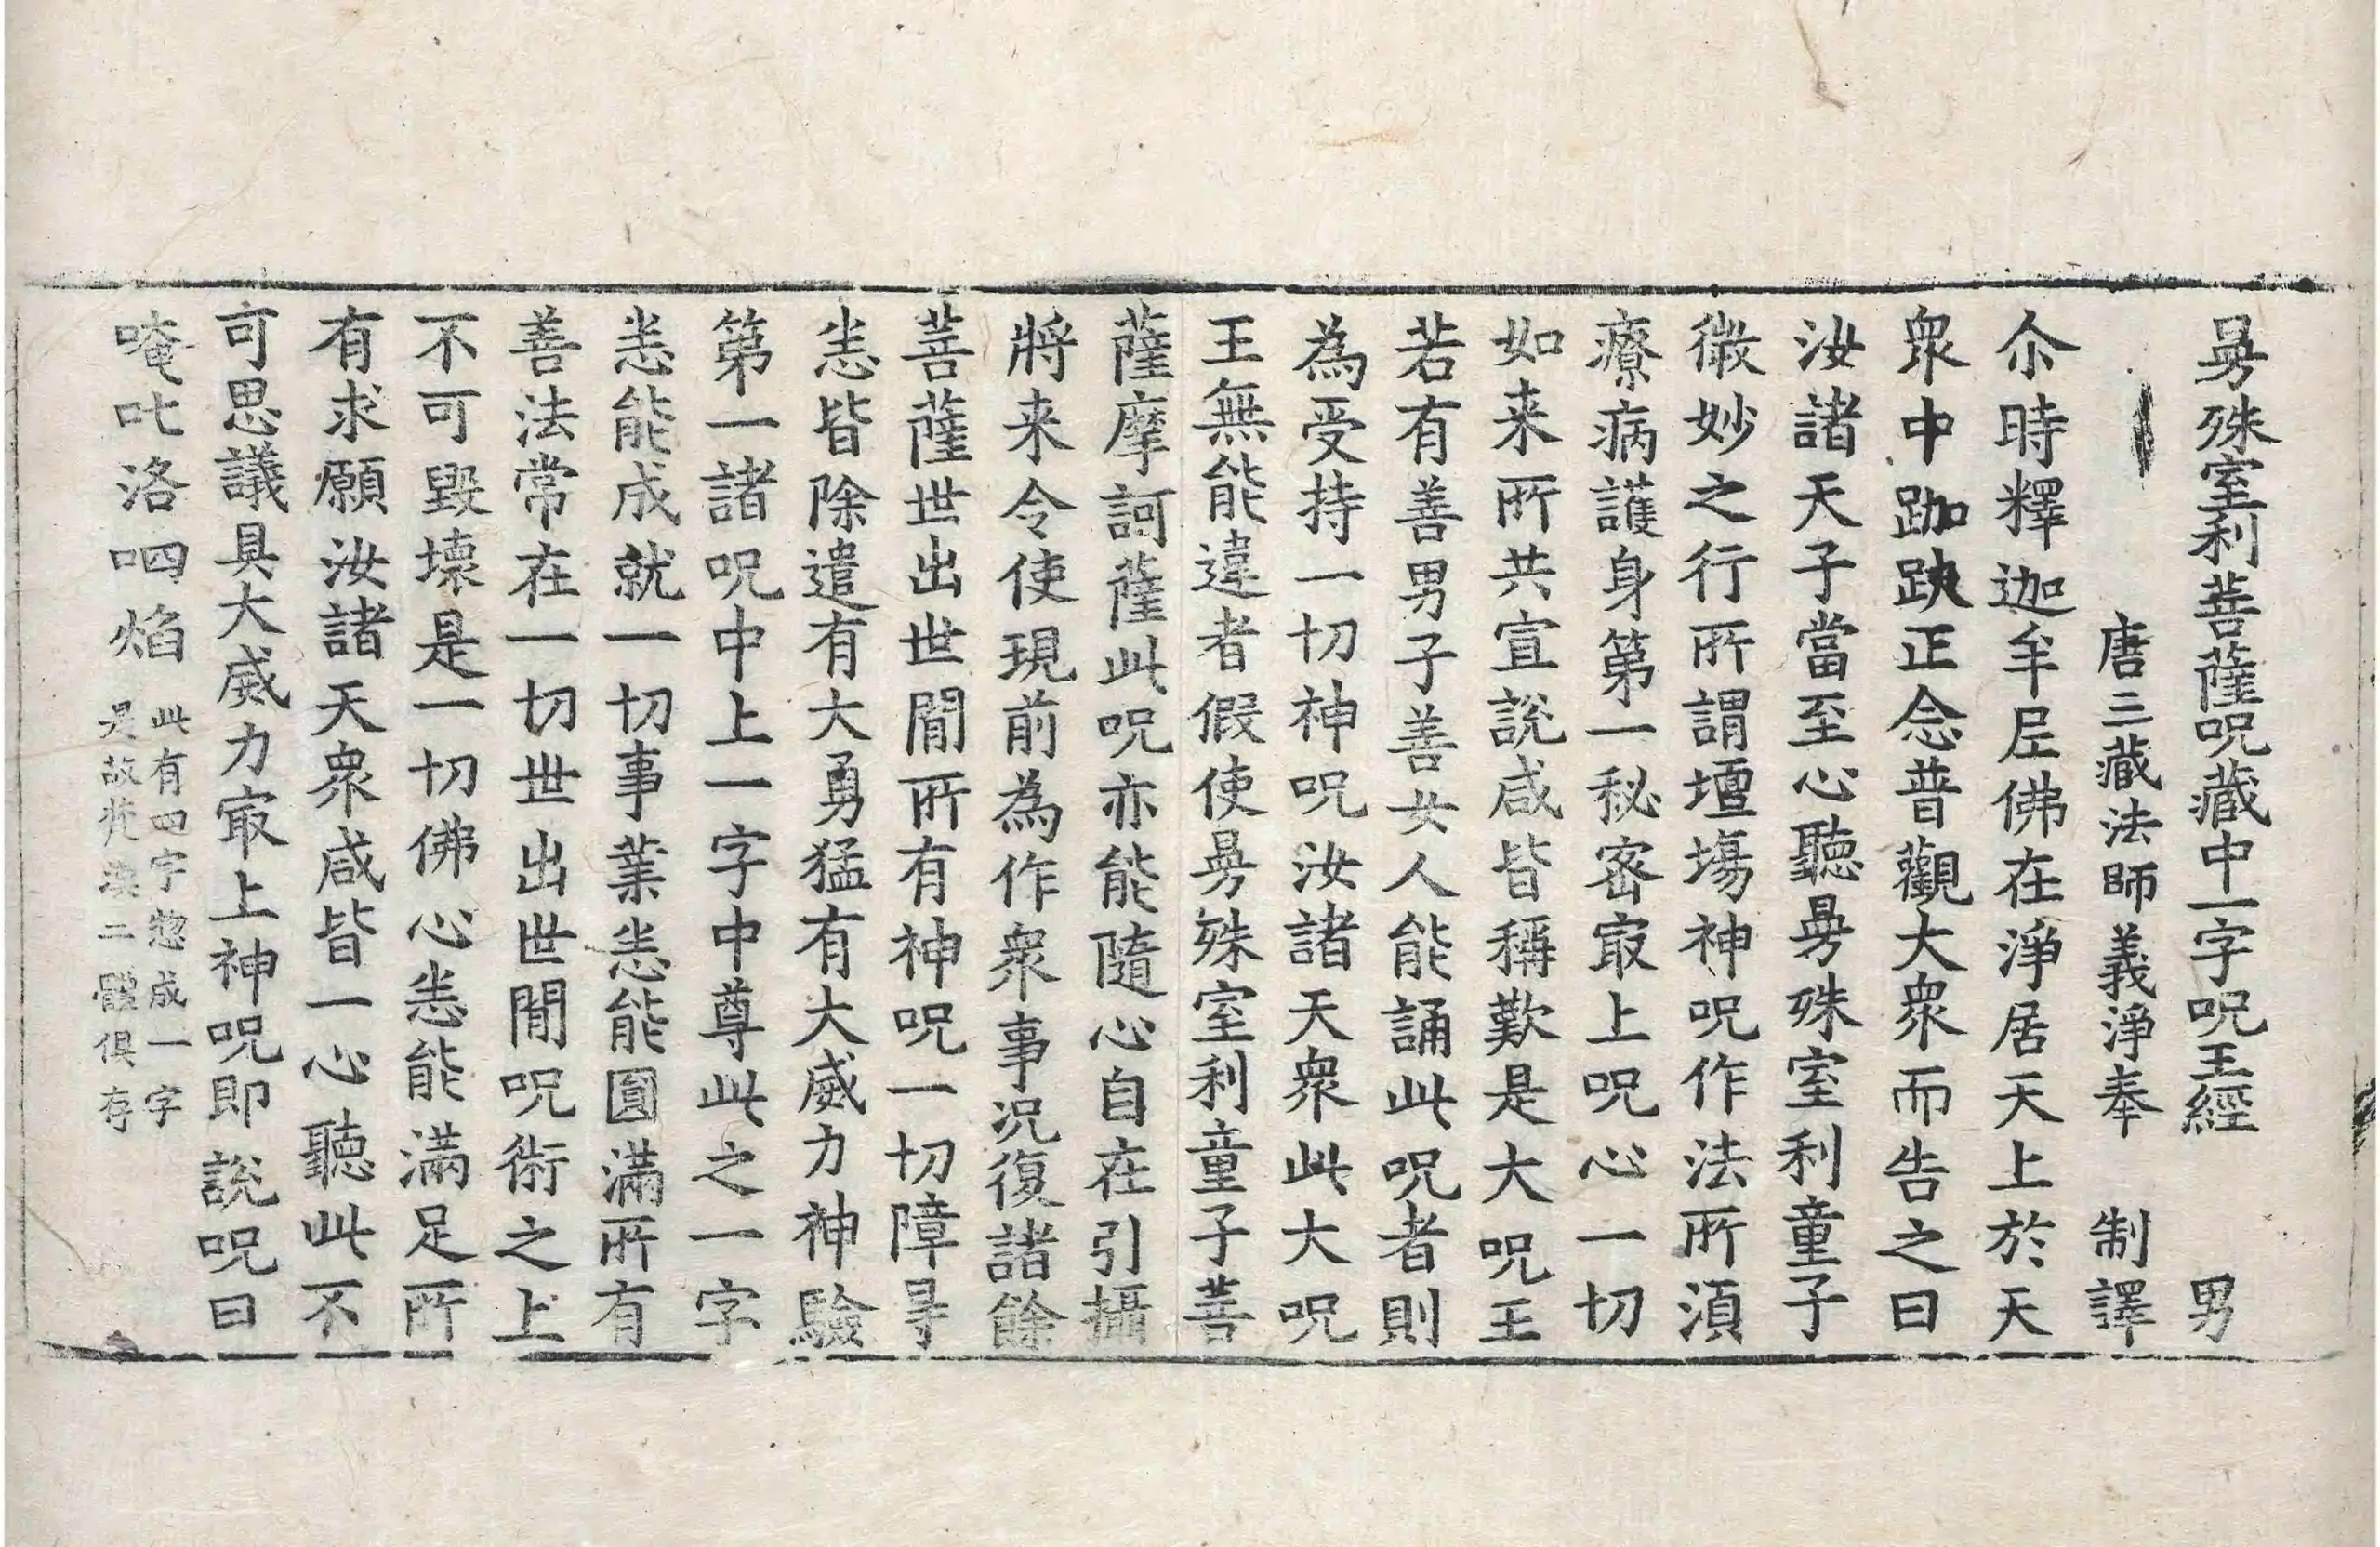 曼殊室利菩薩呪藏中一字呪王經 男
唐三藏法師義淨奉 制譯
尒時釋迦牟尼佛在淨居天上於天
衆中跏趺正念普觀大衆而告之曰
汝諸天子當至心聽曼殊室利童子
微妙之行所謂壇場神呪作法所湏
療病護身第一秘密㝡上呪心一切
如来所共宣說咸皆稱歎是大呪王
若有善男子善女人能誦此呪者則
為受持一切神呪汝諸天衆此大呪
王無能違者假使曼殊室利童子菩
薩摩訶薩此呪亦能隨心自在引攝
將来令使現前為作衆事况復諸餘
菩薩世出世間所有神呪一切障㝵
悉皆除遣有大勇猛有大威力神驗
第一諸呪中上一字中尊此之一字
悉能成就一切事業悉能圓滿所有
善法常在一切世出世間呪術之上
不可毀壞是一切佛心悉能滿足所
有求願汝諸天衆咸皆一心聽此不
可思議具大威力㝡上神呪即說呪曰
唵叱洛呬焰 此有四字惣成一字
是故梵漢二體俱存